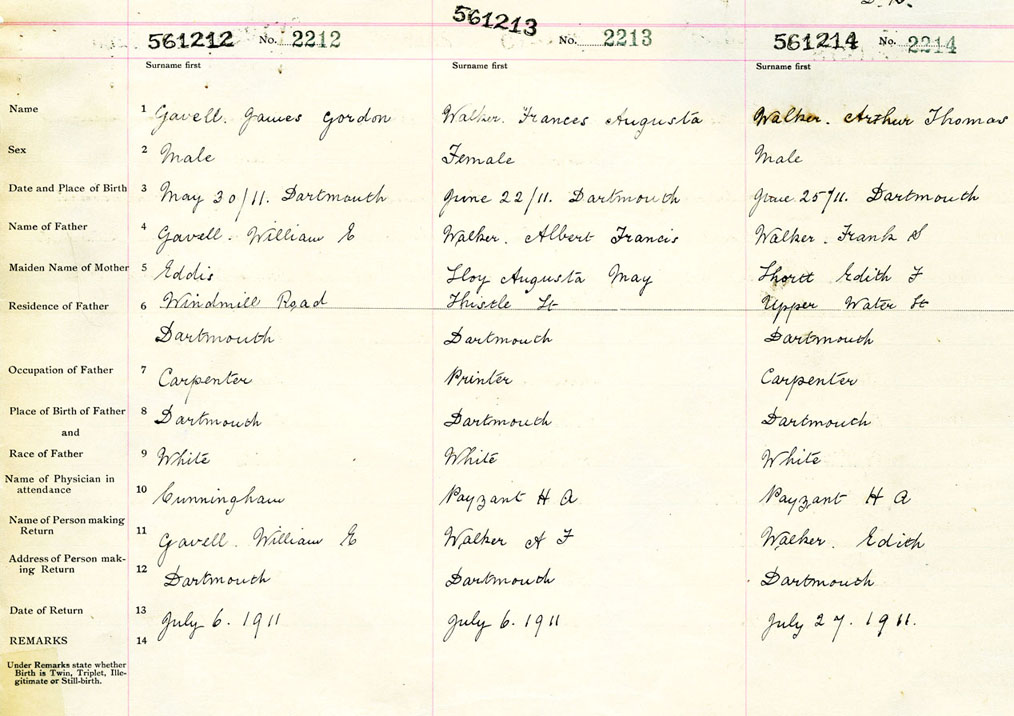 561212 No. 2212 561213 No. 2213 561214 No. 2214
Surname first Surname first Surname first
Name 1 Gavell. James Gordon Walker. Frances Augusta Walker. Arthur Thomas
Sex 2 Male Female Male
Date and Place of Birth 3 May 30/11. Dartmouth June 22/11. Dartmouth June 25/11. Dartmouth
Name of Father 4 Gavell. William E Walker. Albert Francis Walker. Frank S
Maiden Name of Mother 5 Eddis Lloy Augusta May Shortt Edith F
Residence of Father 6 Windmill Road Thistle St Upper Water St
Dartmouth Dartmouth Dartmouth
Occupation of Father 7 Carpenter Printer Carpenter
Place of Birth of Father 8 Dartmouth Dartmouth Dartmouth
and
Race of Father 9 White White White
Name of Physician in
attendance 10 Cunningham Payzant H A Payzant H A
Name of Person making
Return 11 Gavell. William E Walker A F Walker. Edith
Address of Person mak-
ing Return 12 Dartmouth Dartmouth Dartmouth
Date of Return 13 July 6. 1911 July 6. 1911 July 27. 1911.
REMARKS 14
Under Remarks state whether
Birth is Twin, Triplet, Ille-
gitimate or Still-birth.